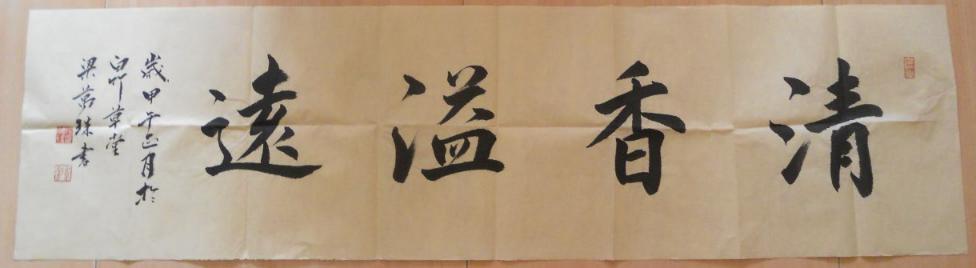 清香溢遠
歲甲午正月於
白竹草堂
梁萬珠書